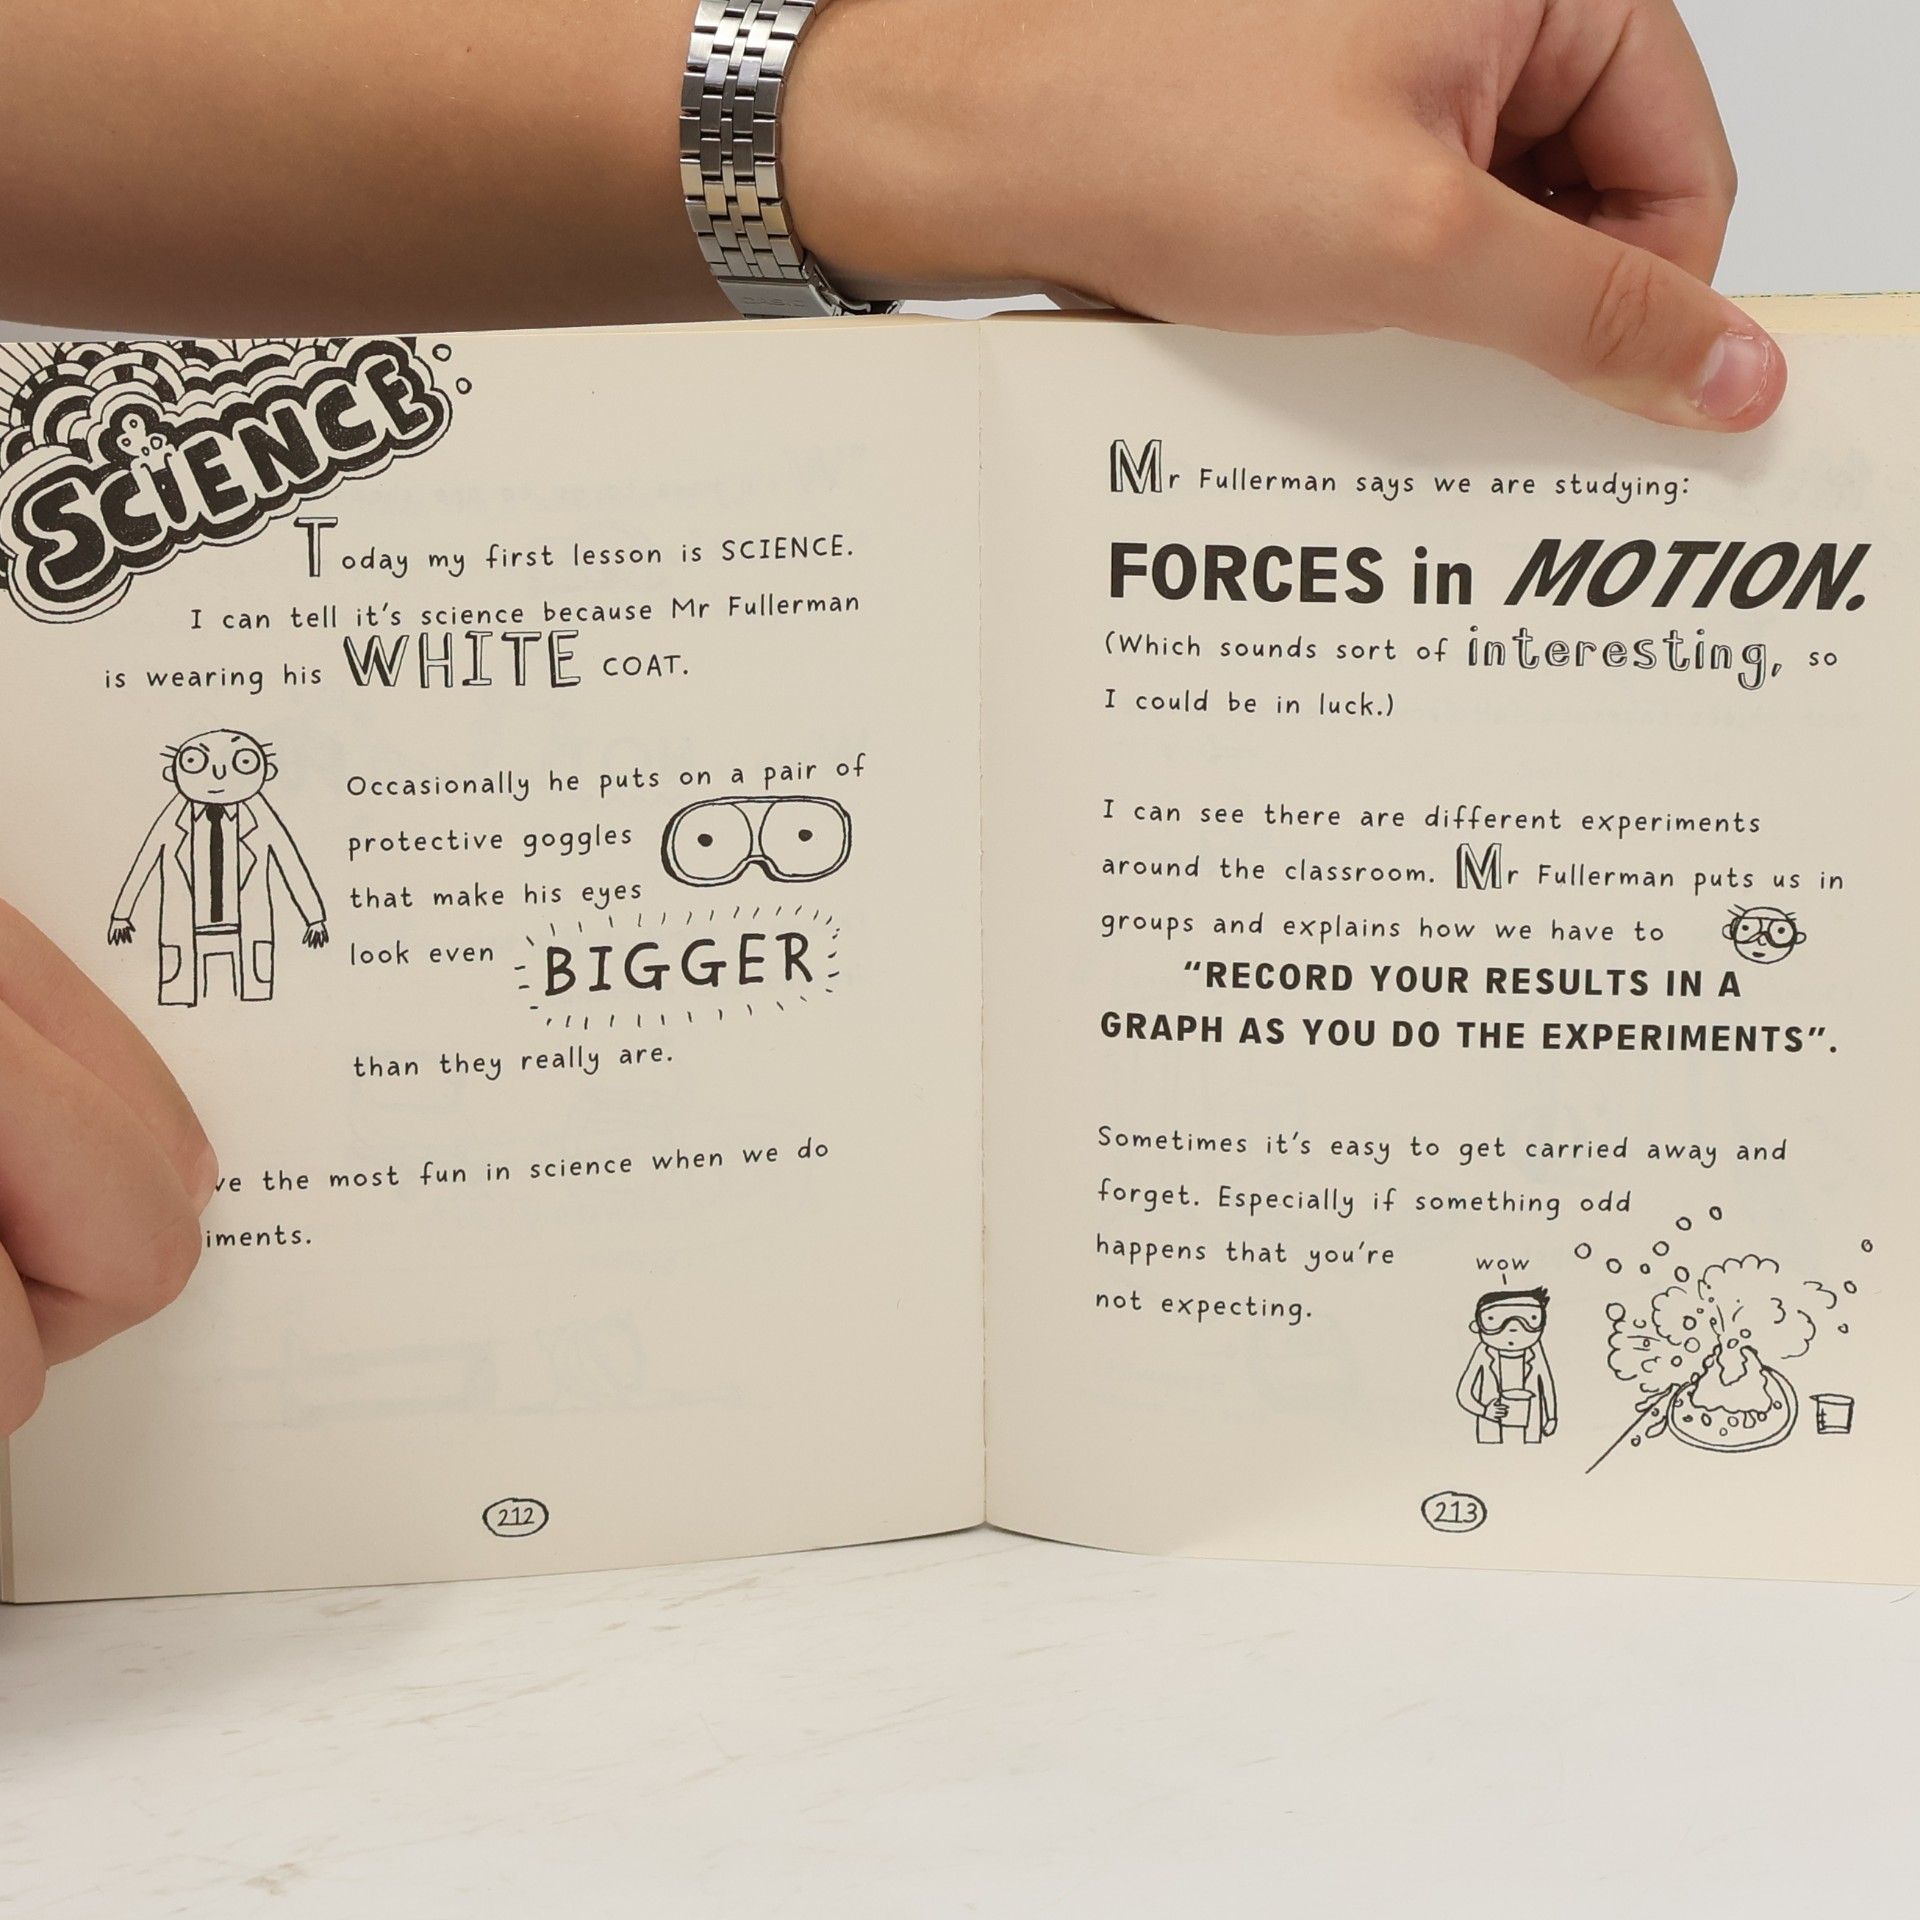 SCIENCE
Today my first lesson is SCIENCE.
I can tell it's science because Mr Fullerman
is wearing his WHITE COAT.
Occasionally he puts on a pair of
protective goggles
that make his eyes
look even BIGGER
than they really are.
the most fun in science when we do
212
Mr Fullerman says we are studying:
FORCES in MOTION.
(Which sounds sort of interesting, so
I could be in luck.)
I can see there are different experiments
around the classroom. Mr Fullerman puts us in
groups and explains how we have to
“RECORD YOUR RESULTS IN A
GRAPH AS YOU DO THE EXPERIMENTS”.
Sometimes it's easy to get carried away and
forget. Especially if something odd
happens that you're
not expecting.
wow
213